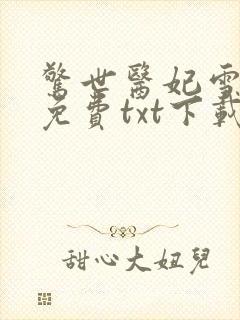 驚世醫妃雪
免費txt下載
甜心大妞兒